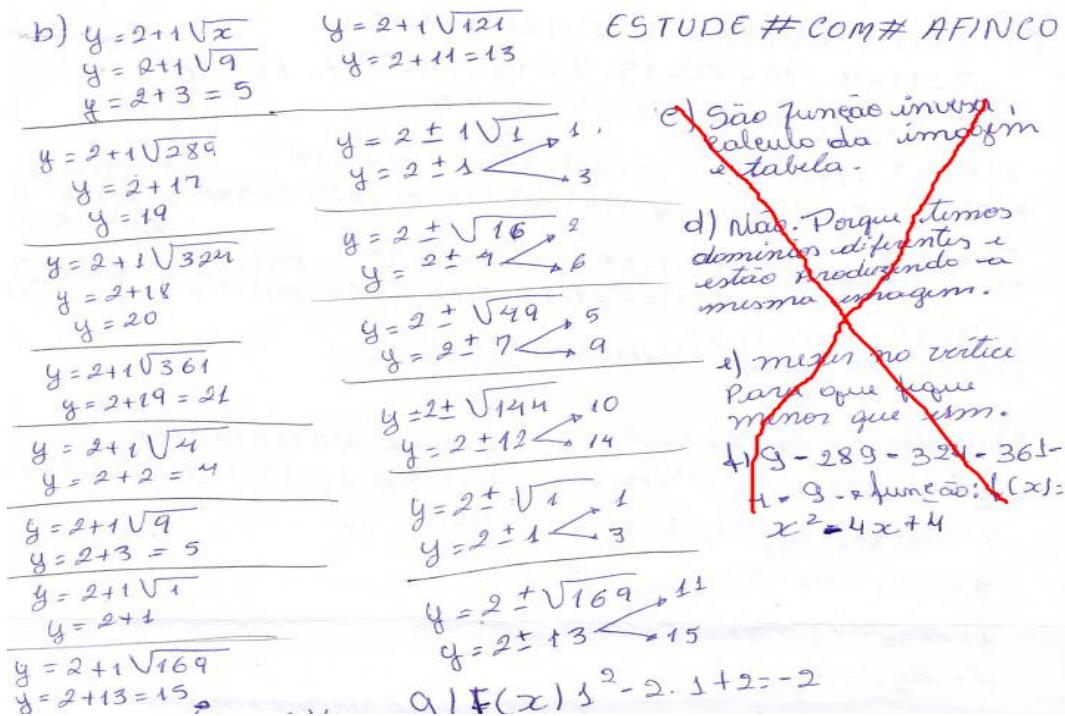 b) y = 2+1√x
y = 2+1√9
y = 2+3 = 5
y = 2+1√289
y = 2+17
y = 19
y = 2+1√324
y = 2+18
y = 20
y = 2+1√361
y = 2+19 = 21
y = 2+1√4
y = 2+2 = 4
y = 2+1√9
y = 2+3 = 5
y = 2+1√1
y = 2+1
y = 2+1√169
y = 2+13 = 15
y = 2+1√121
y = 2+11 = 13
y = 2 ± 1√1
y = 2 ± 1
1
3
y = 2 ± √16
y = 2 ± 4
2
6
y = 2 ± √49
y = 2 ± 7
5
9
y = 2 ± √144
y = 2 ± 12
10
14
y = 2 ± √1
y = 2 ± 1
1
3
y = 2 ± √169
y = 2 ± 13
11
15
g) F(x) 1² - 2. 1 + 2 = -2
ESTUDE # COM # AFINCO
c) São função inversa,
calculo da imagem
e tabela.
d) Não. Porque temos
dominios diferentes e
estão produzindo a
mesma imagem.
e) mexer no vertice
Para que fique
menor que um.
f) 9 - 289 - 324 - 361 -
4 - 9 - função: f(x) =
x² - 4x + 4